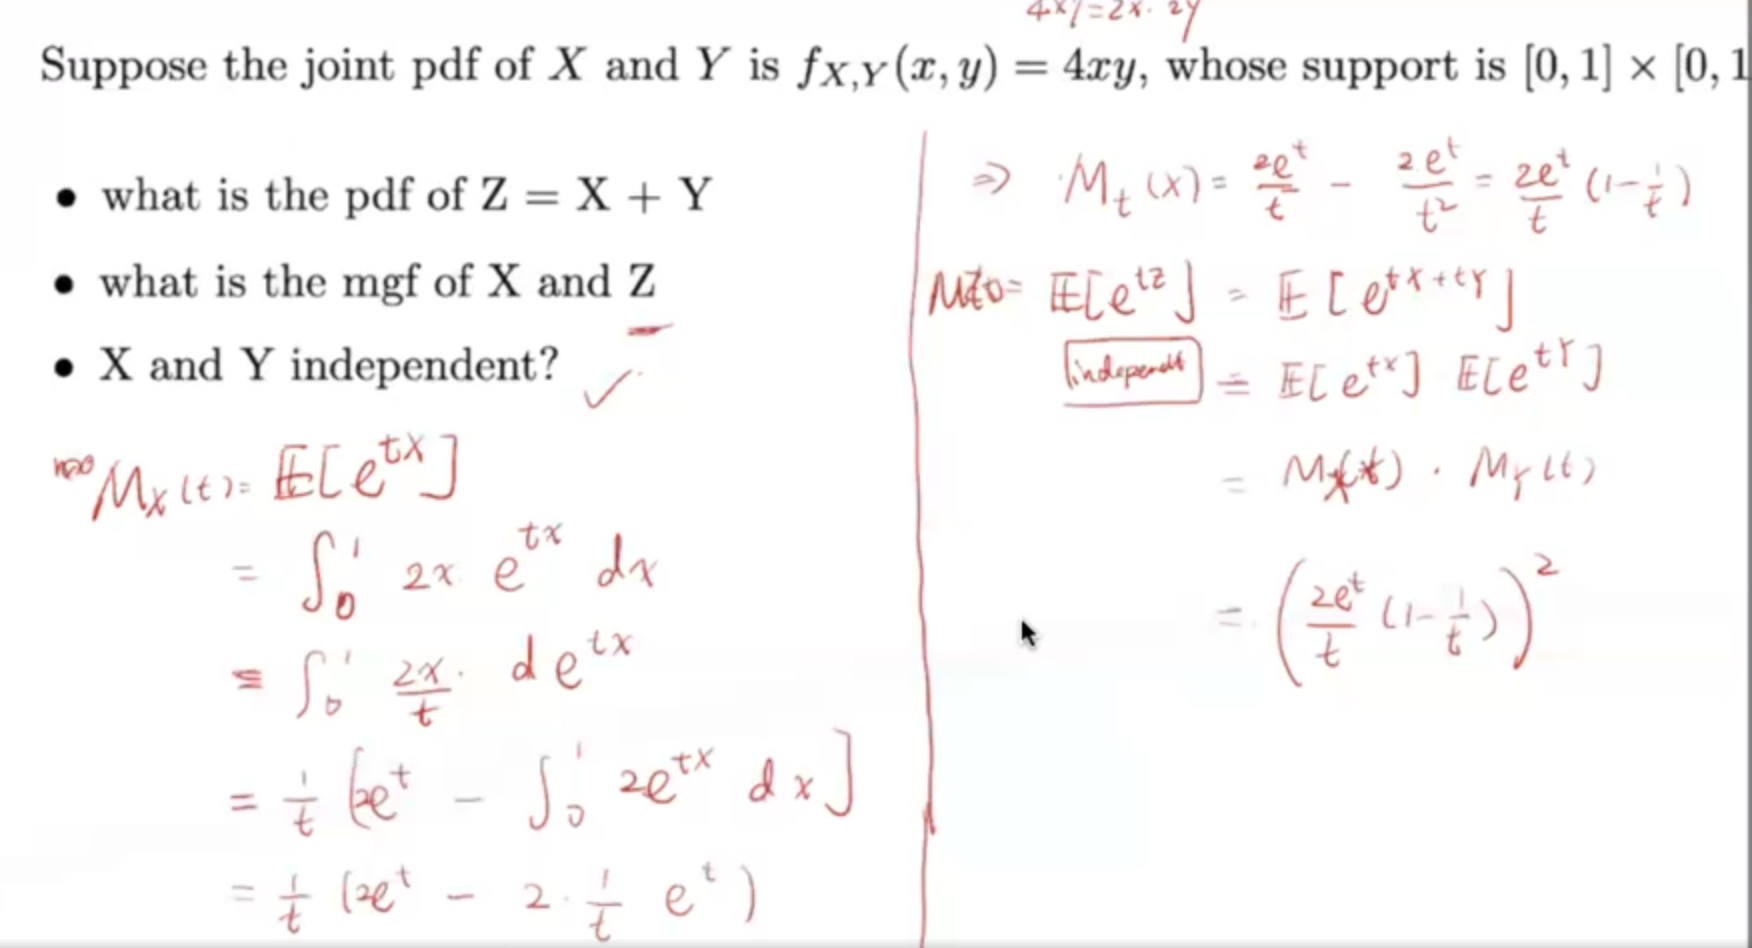 4xy=2x· 2y
Suppose the joint pdf of X and Y is f_{X,Y}(x, y) = 4xy, whose support is [0, 1] × [0, 1
• what is the pdf of Z = X + Y
• what is the mgf of X and Z
• X and Y independent? ✓
M_X(t)= 𝔼[e^{tX}]
= ∫_0^1 2x e^{tx} dx
= ∫_0^1 \frac{2x}{t} · d e^{tx}
= \frac{1}{t} [2e^t − ∫_0^1 2e^{tx} dx]
= \frac{1}{t} (2e^t − 2 · \frac{1}{t} e^t)
⇒ M_t(X) = \frac{2e^t}{t} − \frac{2e^t}{t^2} = \frac{2e^t}{t} (1−\frac{1}{t})
= 𝔼[e^{tZ}] = 𝔼[e^{tX+tY}]
independent = 𝔼[e^{tX}] 𝔼[e^{tY}]
= M_X(t) · M_Y(t)
= (\frac{2e^t}{t} (1−\frac{1}{t}))^2